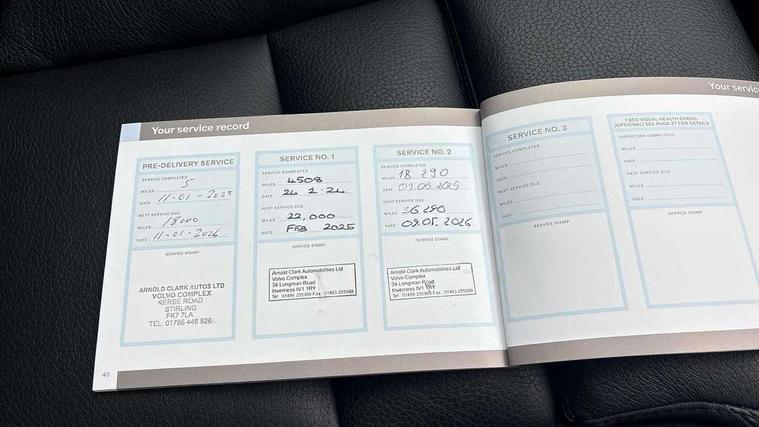 Your service record
PRE-DELIVERY SERVICE
SERVICE COMPLETED
MILES 5
DATE 11-01-2023
NEXT SERVICE DUE
MILES 18000
DATE 11-01-2024
SERVICE STAMP
ARNOLD CLARK AUTOS LTD
VOLVO COMPLEX
KERSE ROAD
STIRLING
FK7 7LA
TEL: 01786 446 926
40
SERVICE NO. 1
SERVICE COMPLETED
MILES 4508
DATE 26.2.24
NEXT SERVICE DUE
MILES 22,000
DATE FEB 2025
SERVICE STAMP
Arnold Clark Automobilities Ltd
Volvo Complex
34 Longman Road
Inverness IV1 1RY
SERVICE NO. 2
SERVICE COMPLETED
MILES 18 290
DATE 09.05.2025
NEXT SERVICE DUE
MILES 36 290
DATE 09.05.2026
SERVICE STAMP
Arnold Clark Automobilities Ltd
Volvo Complex
34 Longman Road
Inverness IV1 1RY
Your service
SERVICE NO. 3
SERVICE COMPLETED
MILES
DATE
NEXT SERVICE DUE
MILES
DATE
SERVICE STAMP
FREE VISUAL HEALTH CHECK
(OPTIONAL) SEE PAGE 37 FOR DETAILS
INSPECTION COMPLETED
MILES
DATE
NEXT SERVICE DUE
MILES
DATE
SERVICE STAMP